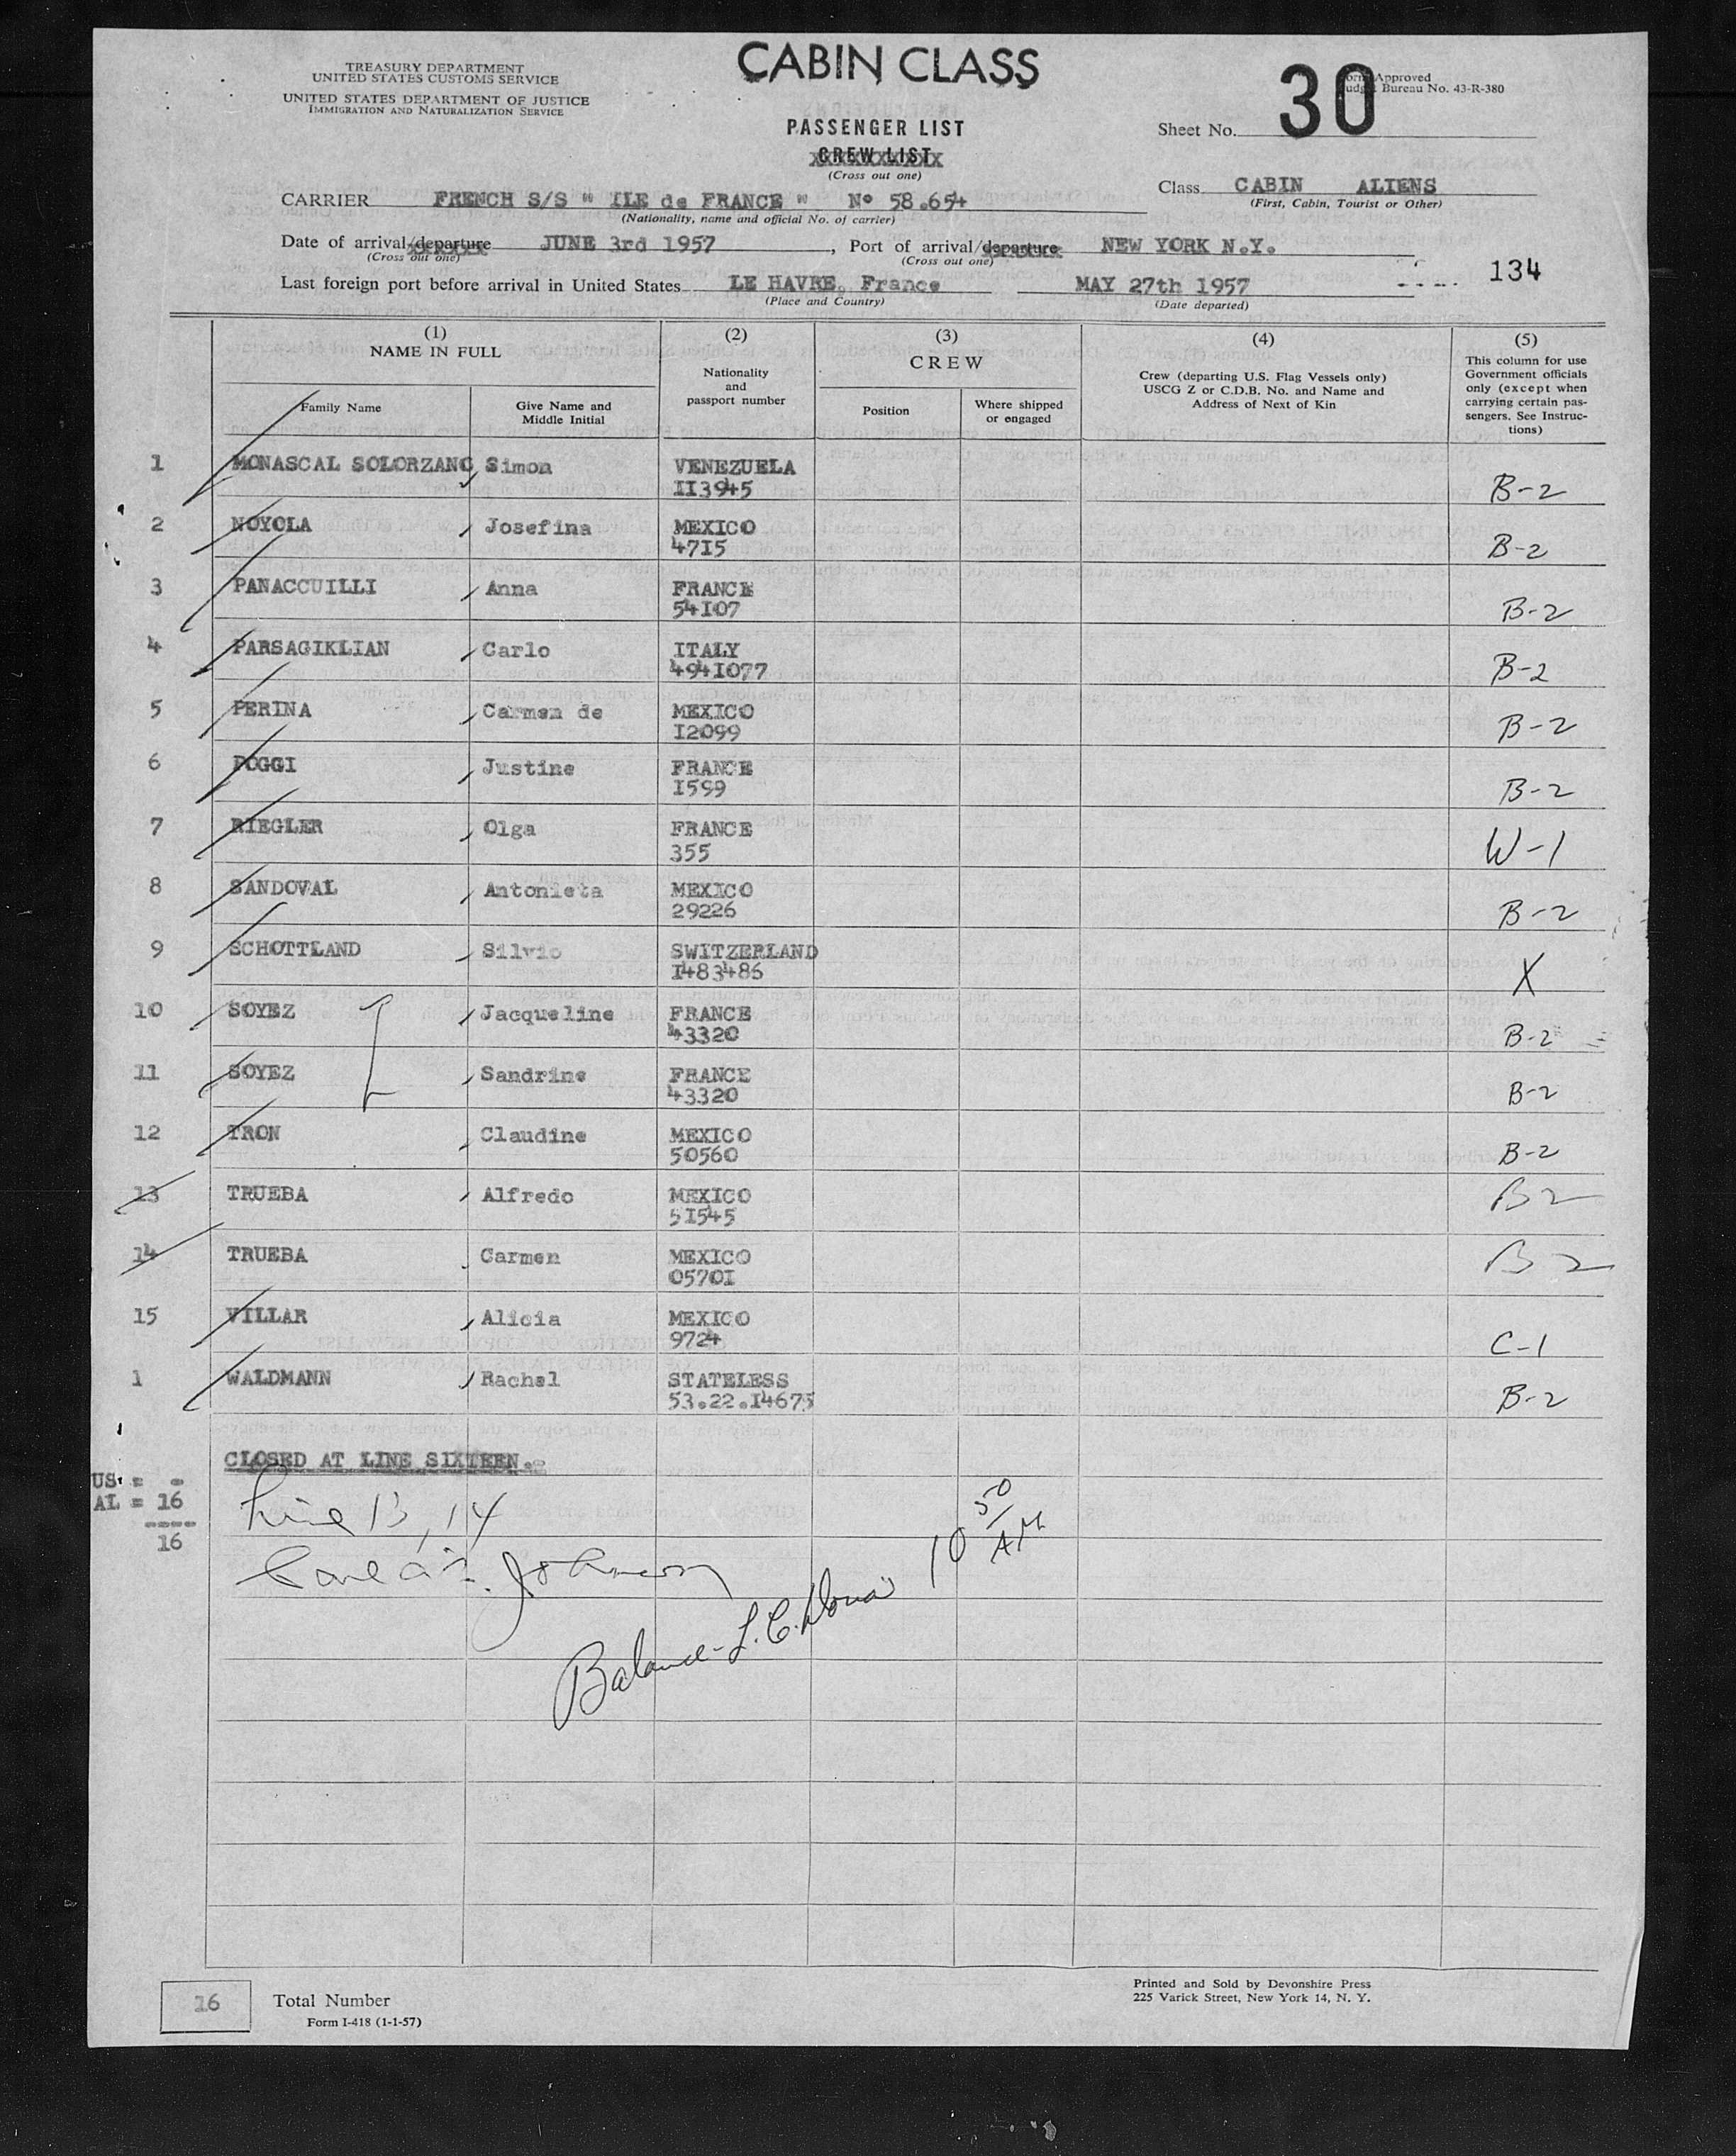 TREASURY DEPARTMENT
UNITED STATES CUSTOMS SERVICE
UNITED STATES DEPARTMENT OF JUSTICE
IMMIGRATION AND NATURALIZATION SERVICE
CABIN CLASS
PASSENGER LIST
CREW LIST
(Cross out one)
30
Approved
Bureau No. 43-R-380
Sheet No.
Class CABIN ALIENS
(First, Cabin, Tourist or Other)
CARRIER FRENCH S/S " ILE de FRANCE " N° 58.654
(Nationality, name and official No. of carrier)
Date of arrival/departure JUNE 3rd 1957, Port of arrival/departure NEW YORK N.Y.
(Cross out one) (Cross out one)
134
Last foreign port before arrival in United States LE HAVRE, France MAY 27th 1957
(Place and Country) (Date departed)
(1) (2) (3) (4) (5)
NAME IN FULL
Family Name
Give Name and Middle Initial
Nationality and passport number
CREW
Position
Where shipped or engaged
Crew (departing U.S. Flag Vessels only)
USCG Z or C.D.B. No. and Name and
Address of Next of Kin
This column for use
Government officials
only (except when
carrying certain pas-
sengers. See Instruc-
tions)
1 MONASCAL SOLORZANO Simon VENEZUELA
II3945 B-2
2 NOYOLA Josefina MEXICO
47I5 B-2
3 PANACCUILLI Anna FRANCE
54I07 B-2
4 PARSAGIKLIAN Carlo ITALY
494I077 B-2
5 PERINA Carmen de MEXICO
I2099 B-2
6 POGGI Justine FRANCE
I599 B-2
7 RIEGLER Olga FRANCE
355 W-1
8 SANDOVAL Antonieta MEXICO
29226 B-2
9 SCHOTTLAND Silvio SWITZERLAND
I483486 X
10 SOYEZ Jacqueline FRANCE
43320 B-2
11 SOYEZ Sandrine FRANCE
43320 B-2
12 TRON Claudine MEXICO
50560 B-2
13 TRUEBA Alfredo MEXICO
5I545 B2
14 TRUEBA Carmen MEXICO
0570I B2
15 VILLAR Alicia MEXICO
9724 C-1
1 WALDMANN Rachel STATELESS
53.22.I4675 B-2
CLOSED AT LINE SIXTEEN.=
US = -
AL = 16
----
16
Line 13, 14
Johnson
10 50/AM
Balance- L.C.
16
Total Number
Form I-418 (1-1-57)
Printed and Sold by Devonshire Press
225 Varick Street, New York 14, N. Y.